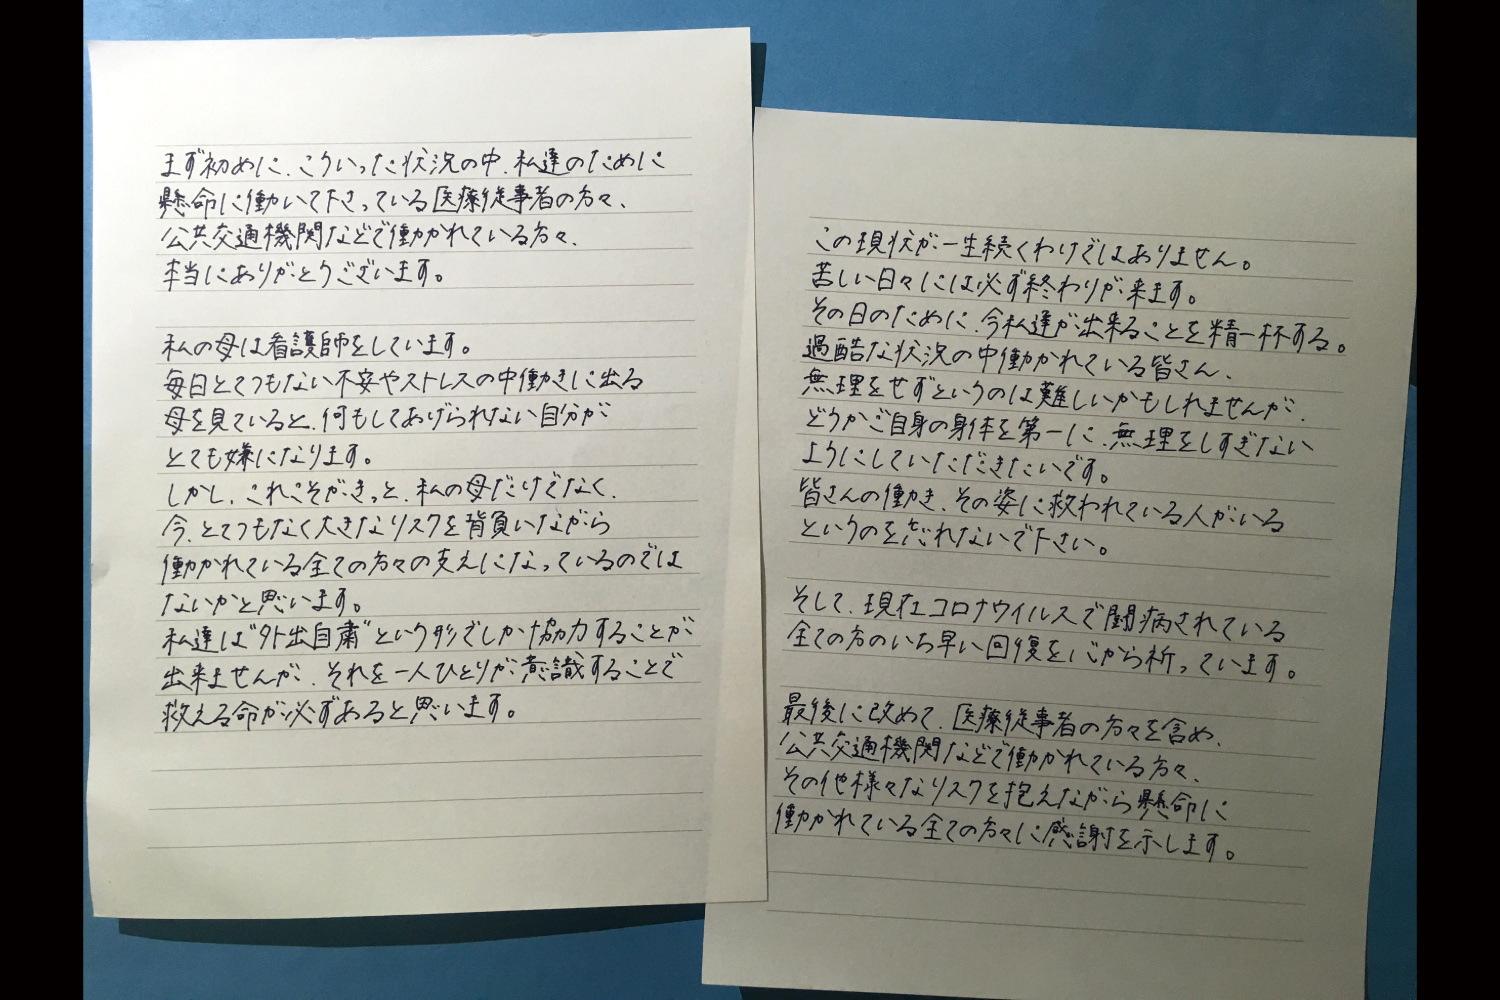 まず初めに、こういった状況の中、私達のために
懸命に働いて下さっている医療従事者の方々、
公共交通機関などで働かれている方々、
本当にありがとうございます。
私の母は看護師をしています。
毎日とてつもない不安やストレスの中働きに出る
母を見ていると、何もしてあげられない自分が
とても嫌になります。
しかし、これこそがきっと、私の母だけでなく、
今、とてつもなく大きなリスクを背負いながら
働かれている全ての方々の支えになっているのでは
ないかと思います。
私達は"外出自粛"という形でしか協力することが
出来ませんが、それを一人ひとりが意識することで
救える命が必ずあると思います。
この現状が一生続くわけではありません。
苦しい日々には必ず終わりが来ます。
その日のために、今私達が出来ることを精一杯する。
過酷な状況の中働かれている皆さん、
無理をせずというのは難しいかもしれませんが、
どうかご自身の身体を第一に、無理をしすぎない
ようにしていただきたいです。
皆さんの働き、その姿に救われている人がいる
というのを忘れないで下さい。
そして、現在コロナウイルスで闘病されている
全ての方のいち早い回復を心から祈っています。
最後に改めて、医療従事者の方々を含め、
公共交通機関などで働かれている方々、
その他様々なリスクを抱えながら懸命に
働かれている全ての方々に感謝を示します。